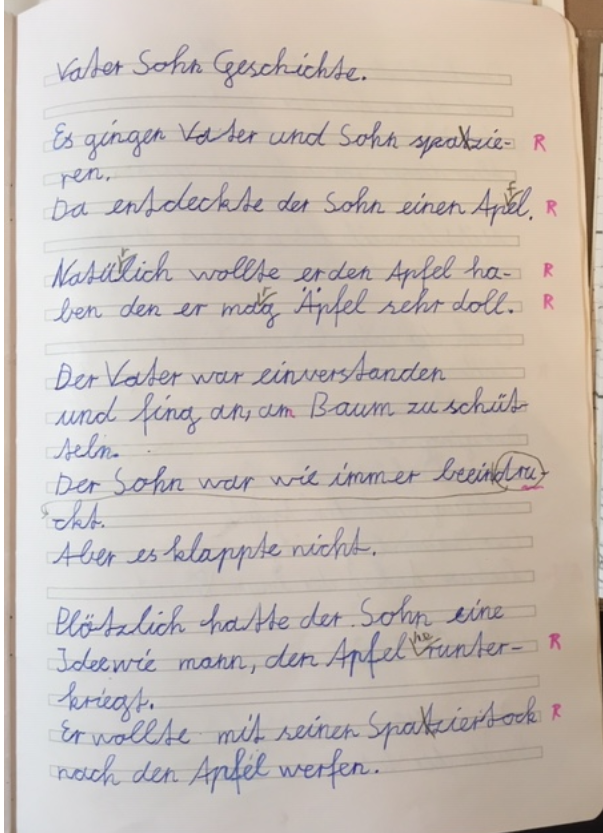 Vater Sohn Geschichte.
Es gingen Vater und Sohn spatzie- R
ren.
f
Da entdeckte der Sohn einen Apel. R
r
Natülich wollte er den Apfel ha- R
r
ben den er mag Äpfel sehr doll. R
Der Vater war einverstanden
und fing an, am Baum zu schüt-
teln.
Der Sohn war wie immer beeindru-
ckt.
Aber es klappte nicht.
Plötzlich hatte der Sohn eine
he
Idee wie mann, den Apfel runter- R
kriegt.
Er wollte mit seinen Spatziertock R
nach den Apfel werfen.